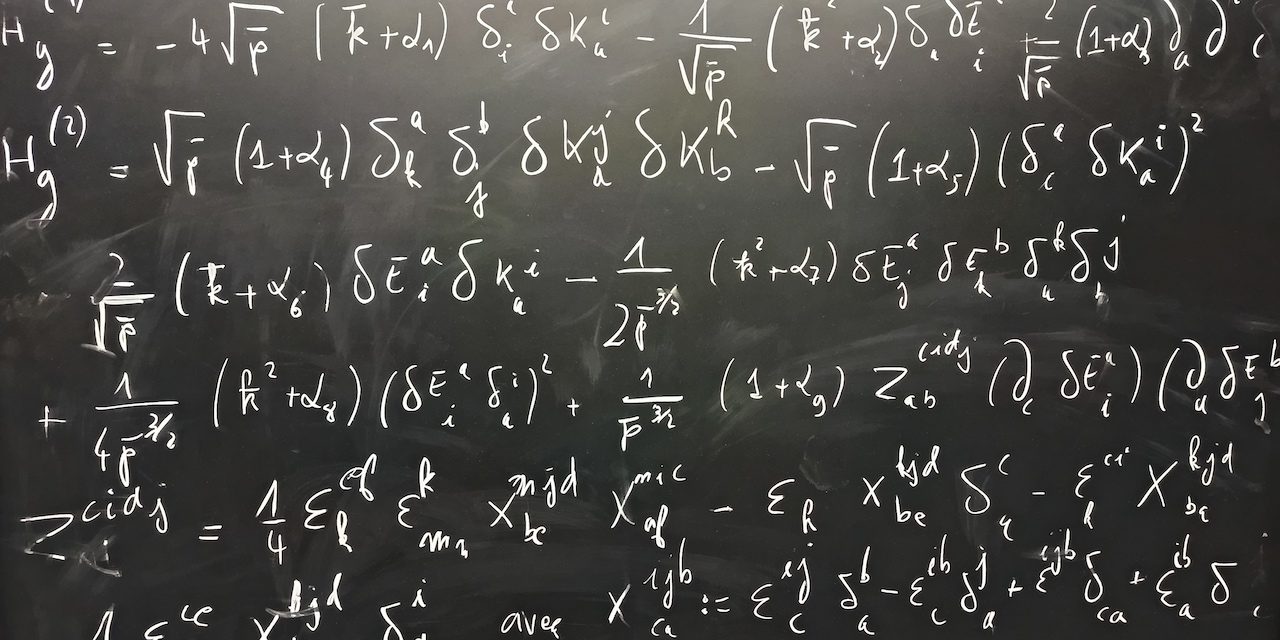 H_g^(1) = -4√p̄ (k̄+α₁) δ_i^a δK_a^i - 1/√p̄ (k̄²+α₂) δ_a δE_i + 2/√p̄ (1+α₃) ∂_a ∂
H_g^(2) = √p̄ (1+α₄) δ_k^a δ_j^b δK_a^j δK_b^k - √p̄ (1+α₅) (δ_c^a δK_a^i)²
- 2/√p̄ (k̄+α₆) δE_i^a δK_a^i - 1/(2p̄^(3/2)) (k̄²+α₇) δE_j^a δE_k^b δ_a^k δ_b^j
+ 1/(4p̄^(3/2)) (k̄²+α₈) (δE_i^a δ_a^i)² + 1/p̄^(3/2) (1+α₉) Z_ab^cidj (∂_c δE_i^a) (∂_d δE_j^b
Z^cidj = 1/4 ε_k^ef ε_mn^k X_be^njd X_af^mic - ε_k X_be^kjd δ_a^c - ε_k^ci X_ba^kjd
1 ε^ce X^kjd δ_a^i avec X_ca^ijb := ε_c^ij δ_a^b - ε_c^ib δ_a^j + ε^ijb δ_ca + ε_a^ib δ